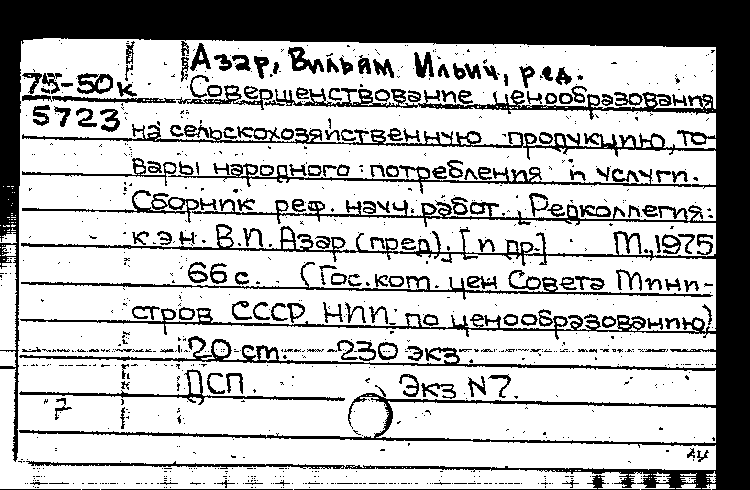 Азар, Вильям Ильич, ред.
75-50к
Совершенствование ценообразования
5723
на сельскохозяйственную продукцию, то-
вары народного потребления и услуги.
Сборник реф. науч. работ. [Редколлегия:
к.э.н. В.И. Азар (пред). [и др.] М., 1975
66 с. (Гос. ком. цен Совета Мини-
стров СССР. НИИ по ценообразованию)
20 ст. 230 экз.
ДСП. Экз N7.
7